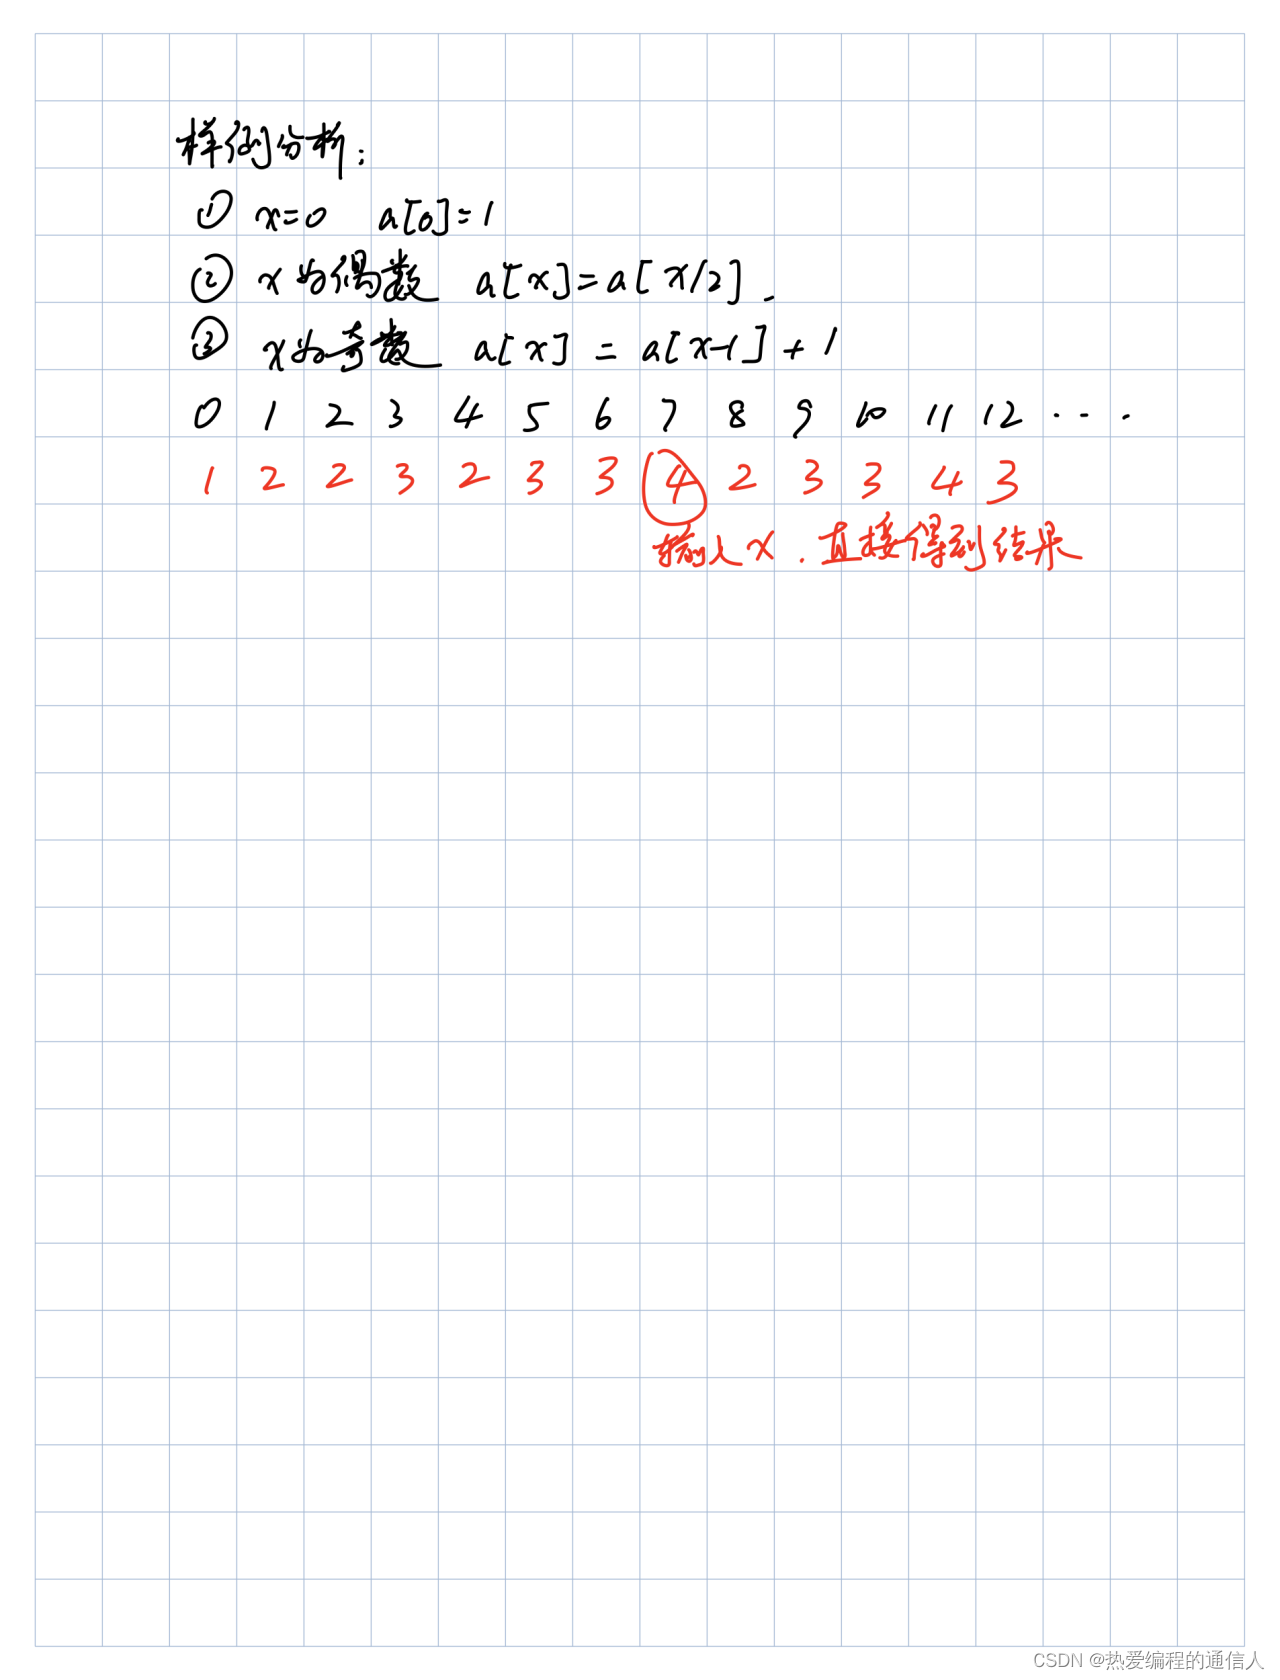 样例分析：
① x=0 a[0]=1
② x为偶数 a[x]=a[x/2].
③ x为奇数 a[x] = a[x-1]+1
0 1 2 3 4 5 6 7 8 9 10 11 12 ...
1 2 2 3 2 3 3 4 2 3 3 4 3
输入x.直接得到结果
CSDN @热爱编程的通信人